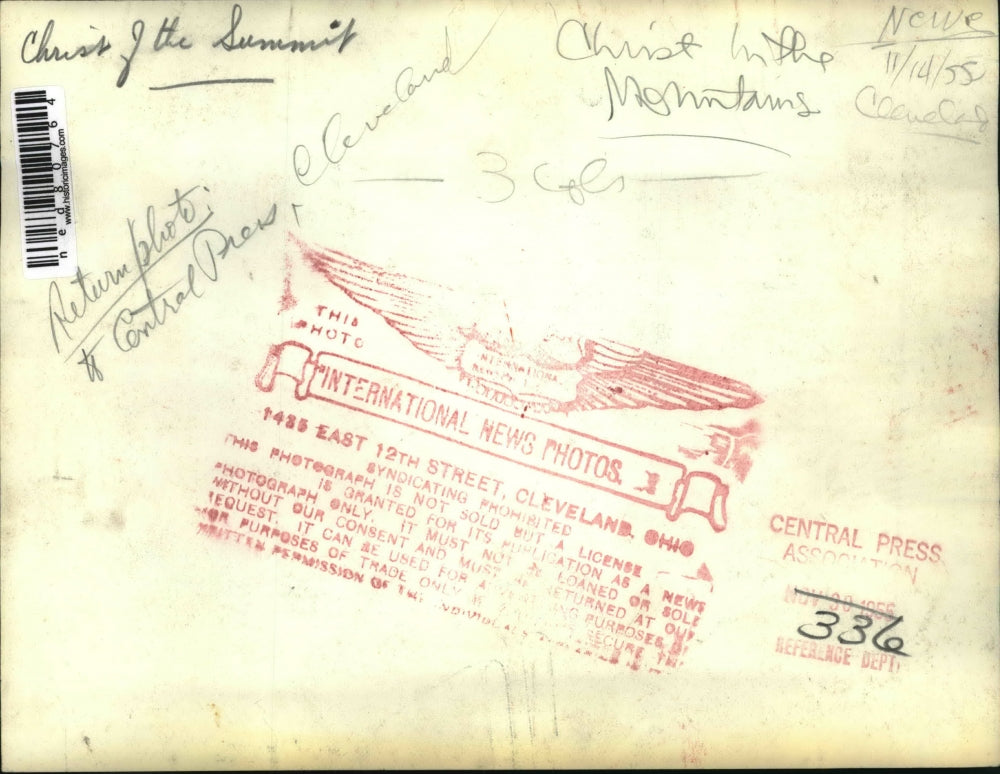 Christ of the Summit
Cleveland
Christ In the
Mountains
News
11/14/55
Cleveland
3 Cols
ned80764
www.historicimages.com
Return photo
to Central Press
THIS
PHOTO
INTERNATIONAL
INTERNATIONAL NEWS PHOTOS,
1435 EAST 12TH STREET, CLEVELAND, OHIO
SYNDICATING PROHIBITED
THIS PHOTOGRAPH IS NOT SOLD BUT A LICENSE
IS GRANTED FOR ITS PUBLICATION AS A NEWS
PHOTOGRAPH ONLY. IT MUST NOT BE LOANED OR SOLD
WITHOUT OUR CONSENT AND MUST BE RETURNED AT OUR
REQUEST. IT CAN BE USED FOR PURPOSES
OR PURPOSES OF TRADE ONLY SECURE
WRITTEN PERMISSION OF THE INDIVIDUALS
CENTRAL PRESS
ASSOCIATION
NOV 30 1955
336
REFERENCE DEPT.